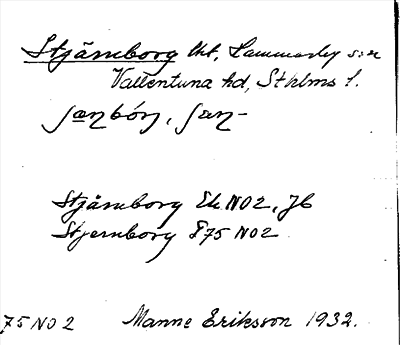 Stjärnborg lht, Lammarby s:n
Vallentuna hd, Sthlms l.
ʃæɳbórj, ʃæɳ-
Stjärnborg Ek NO2, Jb
Stjernborg F75 NO2
75 NO 2 Manne Eriksson 1932.